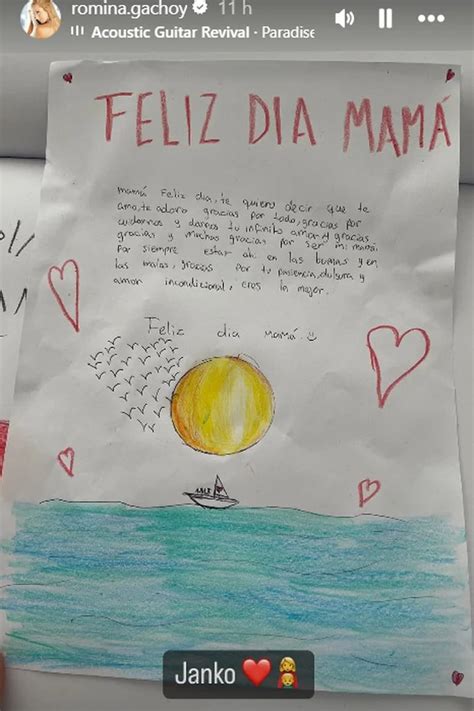 romina.gachoy 11 h
Acoustic Guitar Revival · Paradise
FELIZ DIA MAMÁ
mamá Feliz dia, te quiero decir que te
amo, te adoro gracias por todo, gracias por
cuidarnos y darnos tu infinito amor, gracias,
gracias y muchas gracias por ser mi mamá.
Por siempre estar ahi en las buenas y en
las malas, gracias por tu pasiencia, dulsura y
amor incondicional, eres la mejor.
Feliz dia mamá.
Janko